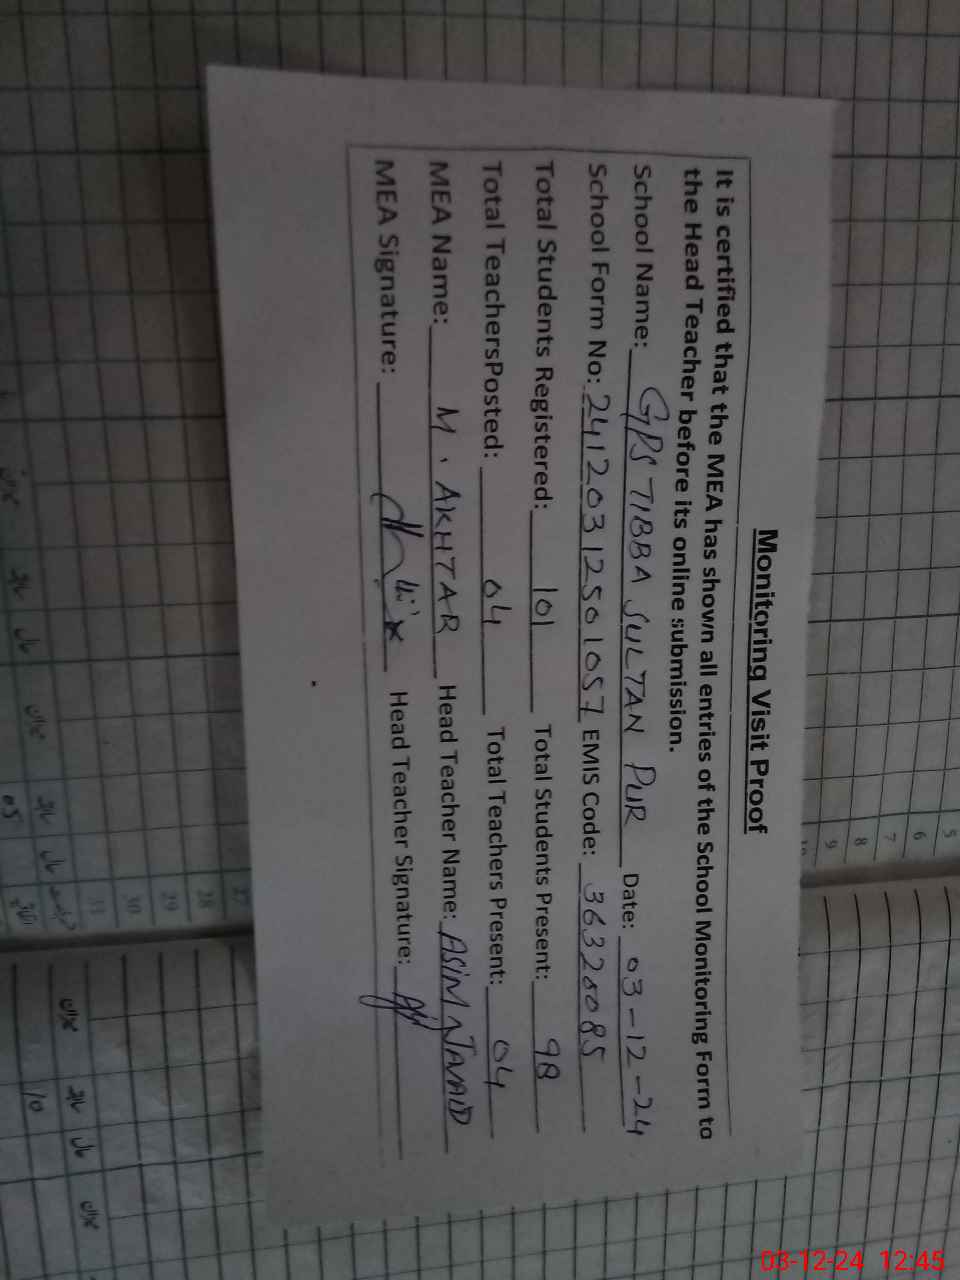 Monitoring Visit Proof
It is certified that the MEA has shown all entries of the School Monitoring Form to
the Head Teacher before its online submission.
School Name: GPS TIBBA SULTAN PUR Date: 03-12-24
School Form No: 2412031250105 EMIS Code: 36320085
Total Students Registered: 101 Total Students Present: 98
Total TeachersPosted: 04 Total Teachers Present: 04
MEA Name: M. AKHTAR Head Teacher Name: ASiM JAVAID
MEA Signature: Head Teacher Signature:
5
6
7
8
9
27
28
29
30
31
05
10
03-12-24 12:45